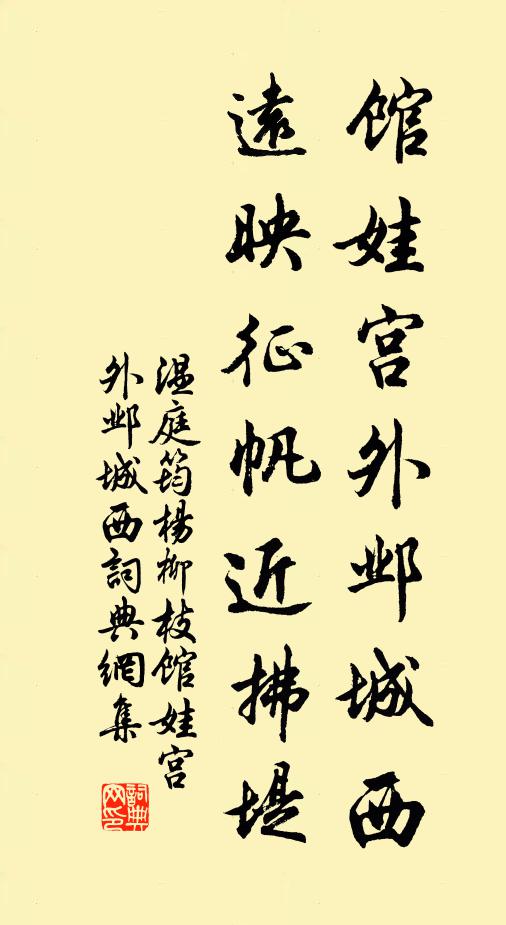 馆娃宫外邺城西
遠映征帆近拂堤
温庭筠楊柳枝馆娃宫
外邺城西詞典網集
詞典网印